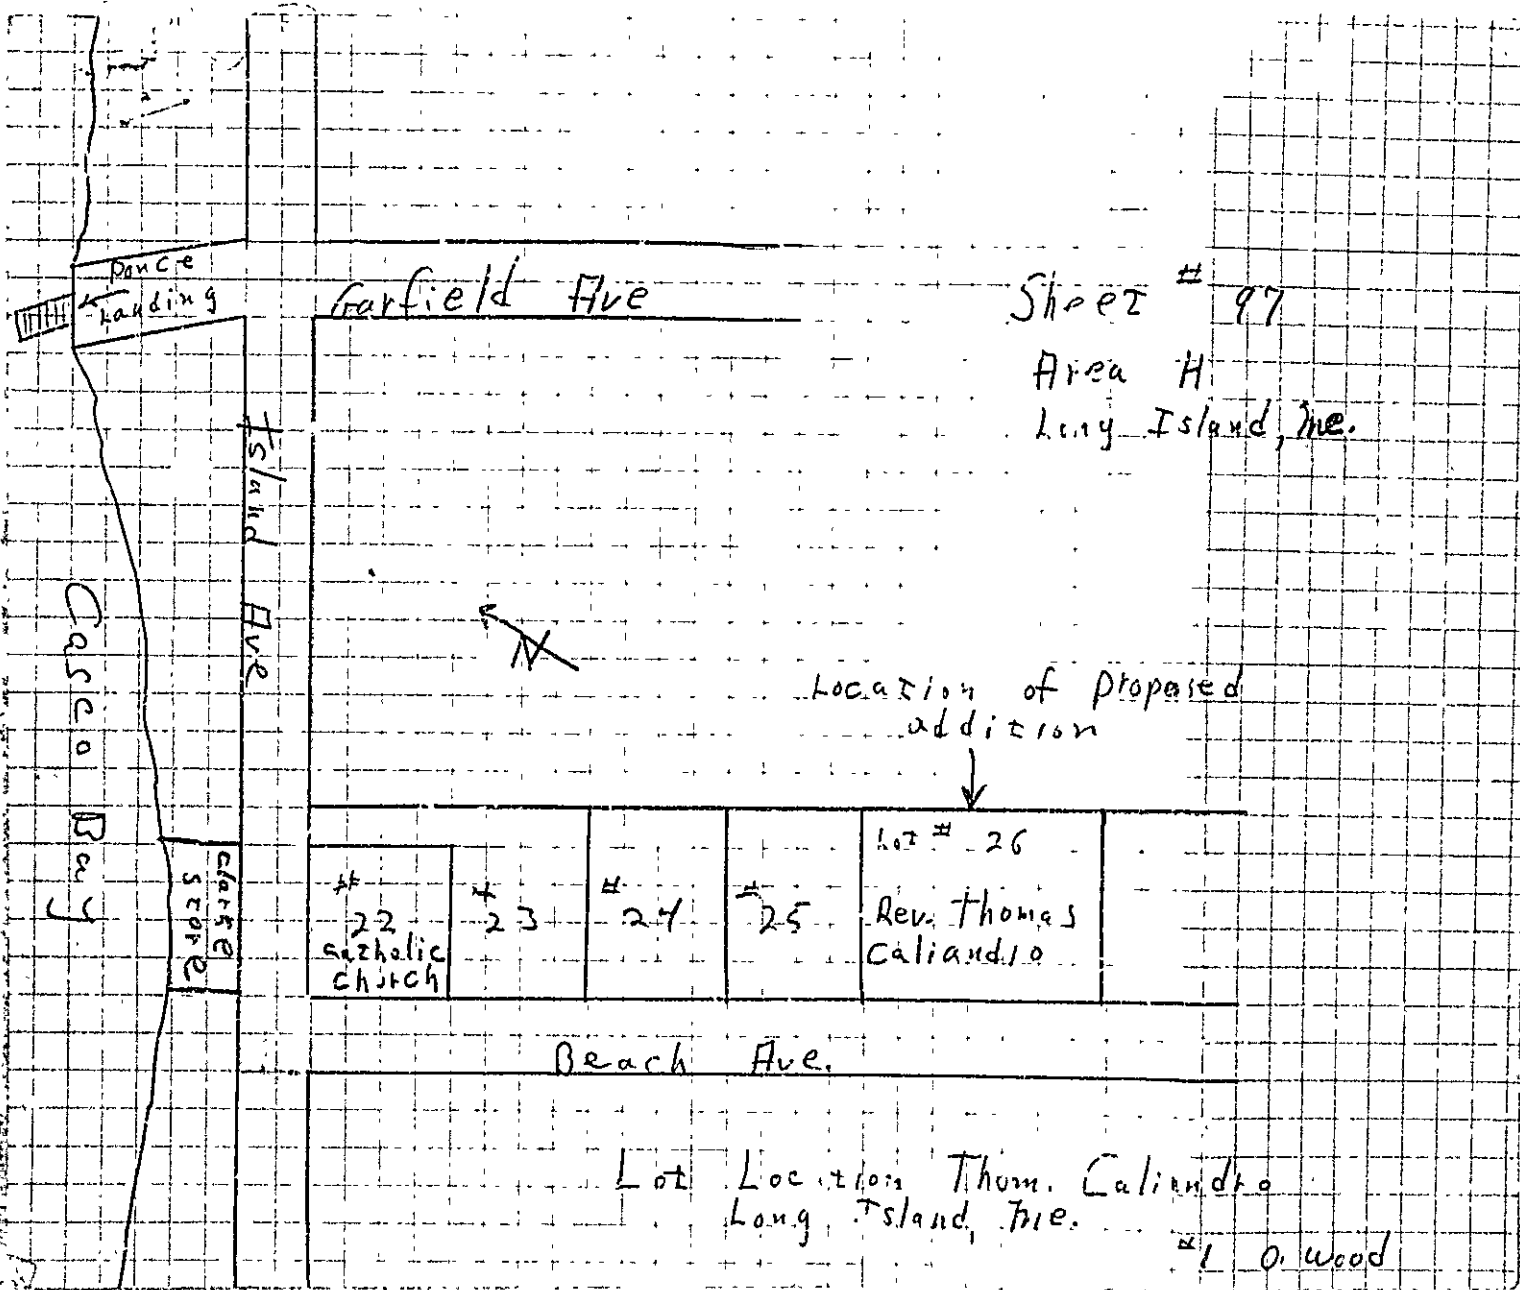 Ponce
Landing
Garfield Ave
Sheet # 97
Area H
Long Island, Me.
Island Ave
Casco Bay
N
Location of Proposed
addition
Clarke
Store
# 22
Catholic
church
# 23
# 24
# 25
Lot # 26
Rev. Thomas
Caliandro
Beach Ave.
Lot Location Thom. Caliandro
Long Island, Me.
#1 O. Wood